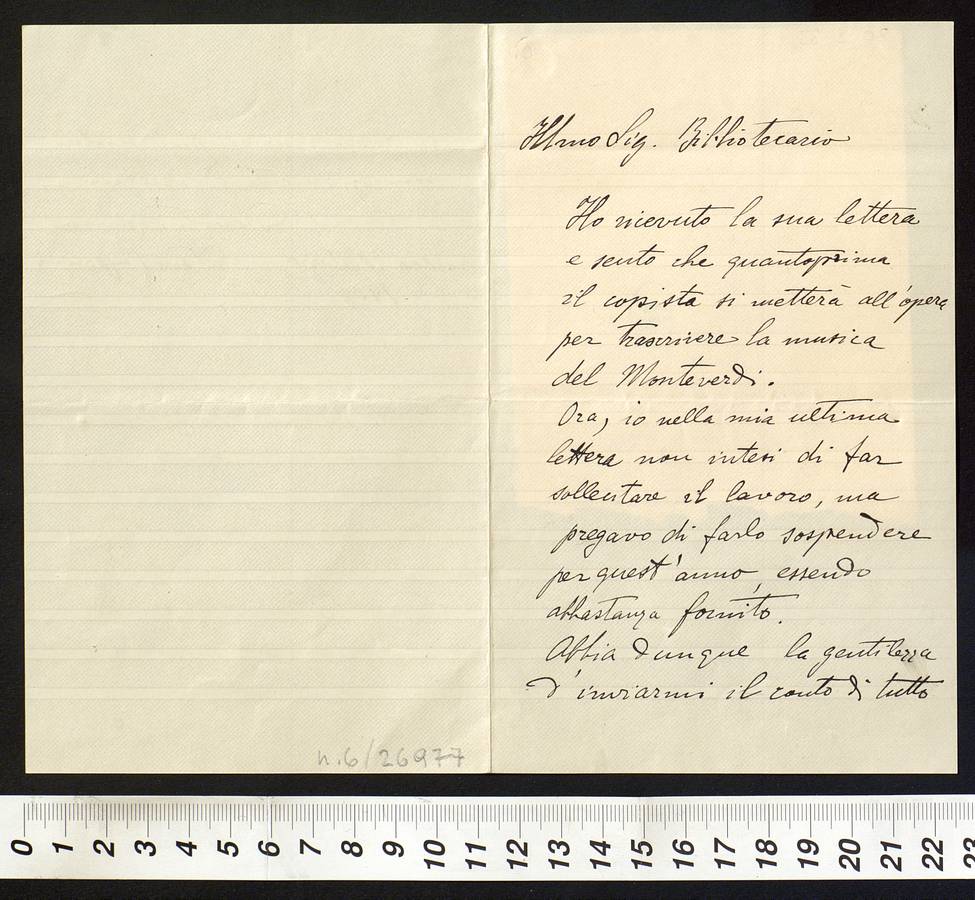 Illmo Sig. Bibliotecario
Ho ricevuto la sua lettera
e sento che quantoprima
il copista si metterà all'opera
per trascrivere la musica
del Monteverdi.
Ora, io nella mia ultima
lettera non intesi di far
sollecitare il lavoro, ma
pregavo di farlo sospendere
per quest'anno, essendo
abbastanza fornito.
Abbia dunque la gentilezza
d'inviarmi il conto di tutto
n. 6/26977
0 1 2 3 4 5 6 7 8 9 10 11 12 13 14 15 16 17 18 19 20 21 22 23